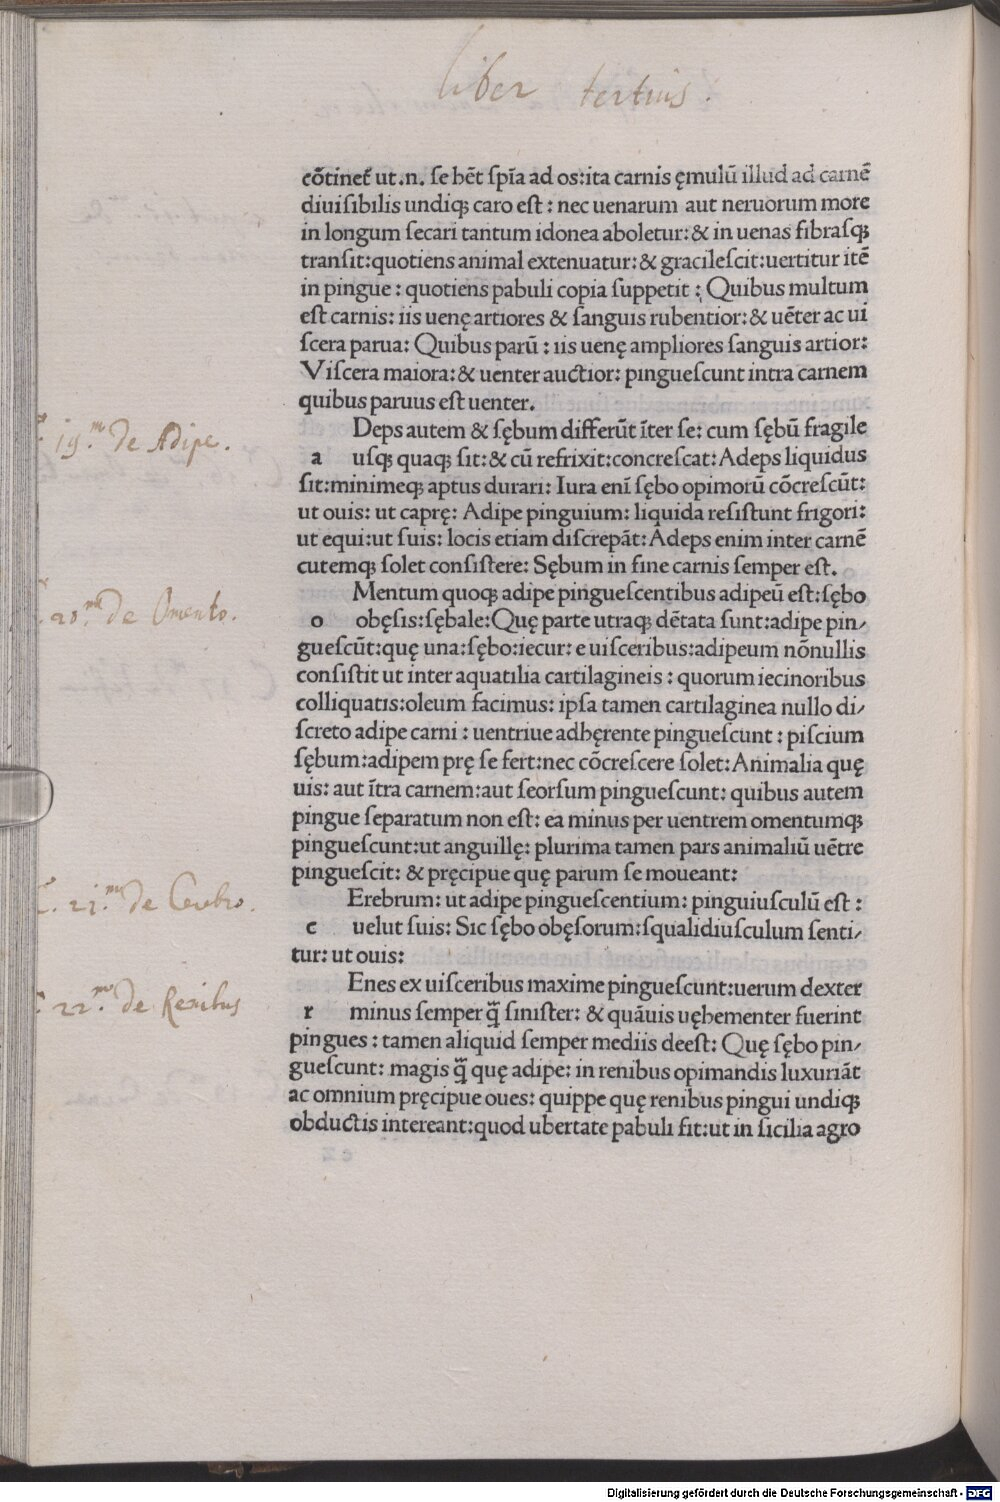 liber tertius.
cõtinet̃ ut.n. ſe hẽt ſpĩa ad os:ita carnis ęmulũ illud ad carnẽ
diuiſibilis undiqꝫ caro eſt : nec uenarum aut neruorum more
in longum ſecari tantum idonea aboletur:& in uenas fibraſqꝫ
tranſit:quotiens animal extenuatur:& gracileſcit:uertitur itẽ
in pingue : quotiens pabuli copia ſuppetit : Quibus multum
eſt carnis: iis uenę artiores & ſanguis rubentior:& uẽter ac ui
ſcera parua: Quibus parũ : iis uenę ampliores ſanguis artior:
Viſcera maiora:& uenter auctior: pingueſcunt intra carnem
quibus paruus eſt uenter.
C. 19.m de Adipe.
Deps autem & ſębum differũt ĩter ſe: cum ſębũ fragile
a uſqꝫ quaqꝫ ſit:& cũ refrixit:concreſcat:Adeps liquidus
ſit:minimeqꝫ aptus durari: Iura enĩ ſębo opimorũ cõcreſcũt:
ut ouis: ut caprę: Adipe pinguium: liquida reſiſtunt frigori:
ut equi:ut ſuis: locis etiam diſcrepãt:Adeps enim inter carnẽ
cutemqꝫ ſolet conſiſtere: Sębum in fine carnis ſemper eſt.
C. 20.m de Omento.
Mentum quoqꝫ adipe pingueſcentibus adipeũ eſt:ſębo
o obęſis:ſębale:Quę parte utraqꝫ dẽtata ſunt:adipe pin/
gueſcũt:quę una:ſębo:iecur: e uiſceribus:adipeum nõnullis
conſiſtit ut inter aquatilia cartilagineis : quorum iecinoribus
colliquatis:oleum facimus: ipſa tamen cartilaginea nullo di/
ſcreto adipe carni : uentriue adhęrente pingueſcunt : piſcium
ſębum:adipem prę ſe fert:nec cõcreſcere ſolet:Animalia quę
uis: aut ĩtra carnem:aut ſeorſum pingueſcunt: quibus autem
pingue ſeparatum non eſt: ea minus per uentrem omentumqꝫ
pingueſcunt:ut anguillę: plurima tamen pars animaliũ uẽtre
pingueſcit: & pręcipue quę parum ſe moueant:
C. 21.m de Cerebro.
Erebrum: ut adipe pingueſcentium: pinguiuſculũ eſt :
c uelut ſuis: Sic ſębo obęſorum:ſqualidiuſculum ſenti/
tur: ut ouis:
C. 22.m de Renibus
Enes ex uiſceribus maxime pingueſcunt:uerum dexter
r minus ſemper q̃ ſiniſter: & quãuis uęhementer fuerint
pingues : tamen aliquid ſemper mediis deeſt: Quę ſębo pin/
gueſcunt: magis q̃ quę adipe: in renibus opimandis luxuriãt
ac omnium pręcipue oues: quippe quę renibus pingui undiqꝫ
obductis intereant:quod ubertate pabuli fit:ut in ſicilia agro
Digitalisierung gefördert durch die Deutsche Forschungsgemeinschaft - DFG